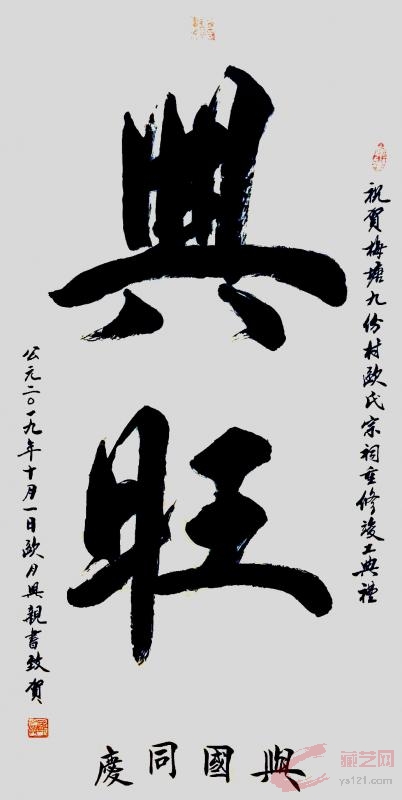 祝贺梅塘九份村欧氏宗祠重修竣工典禮
興旺
公元二〇一九年十月一日欧月興親書致贺
與國同慶
藏艺网
ys121.com